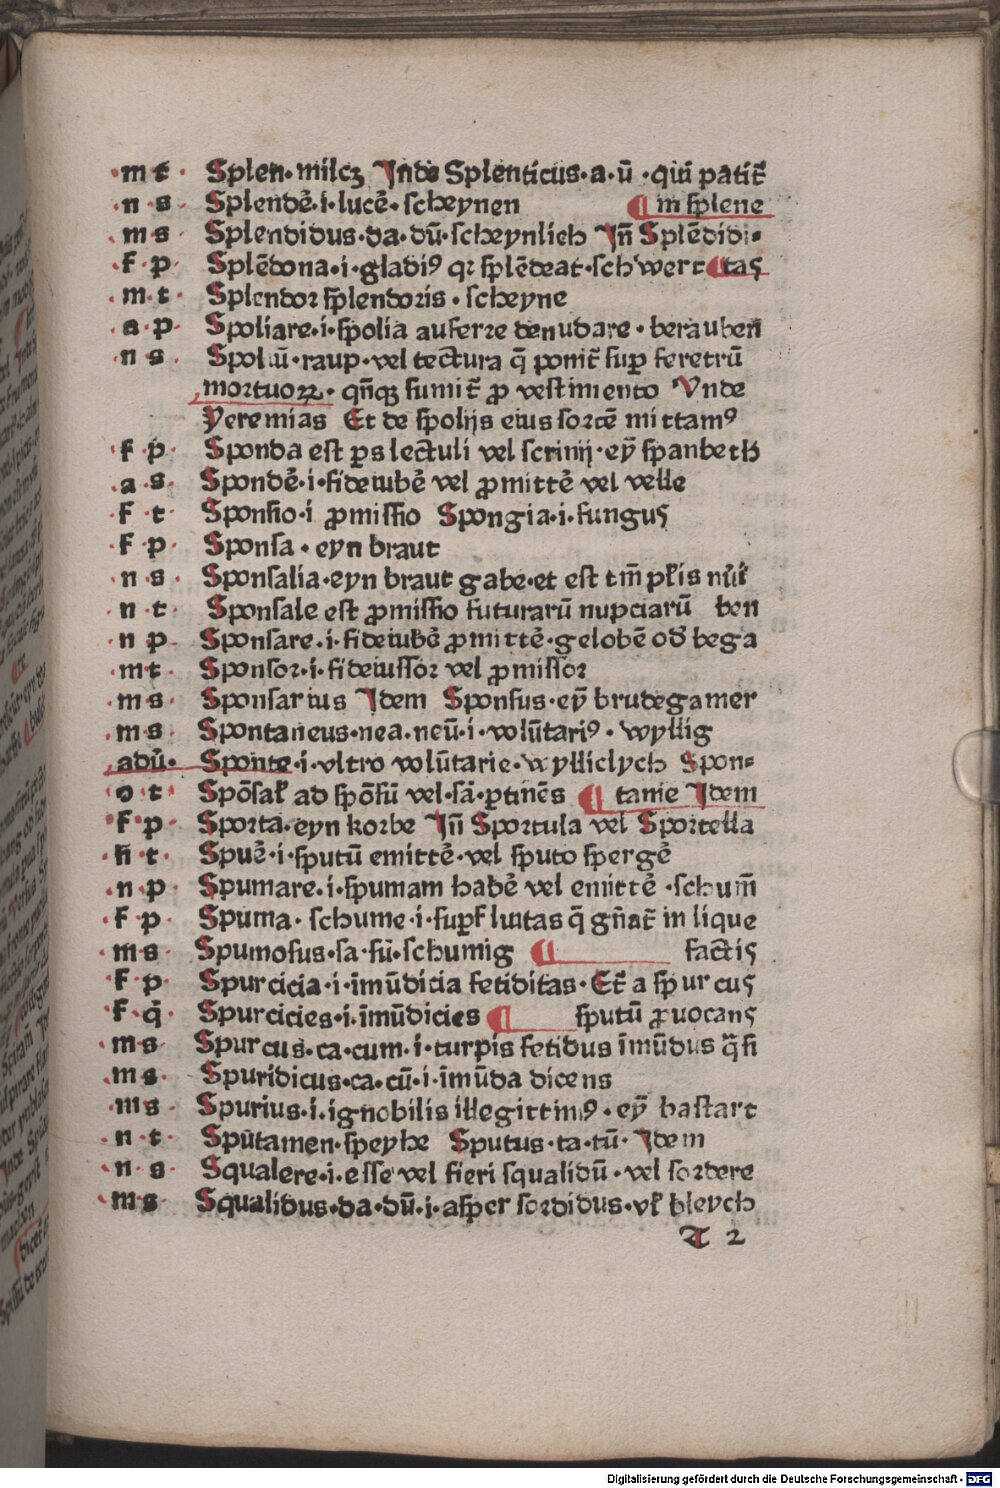 ·m t· Splen·milcz Jnde Splenticus·a·ū·qui patit̄
·n s· Splendē·i·lucē·scheynen ¶ in splene
·m s· Splendidus·da·dū·scheynlich Jn̄ Splēdidi-
·f p· Splēdona·i·gladiꝰ qꝛ splēdeat·schwert ¶ tas
·m t· Splendoꝛ splendoris·scheyne
·a p· Spoliare·i·spolia auferre denudare·berauben
·n s· Spoliū·raup·vel tectura q̄ ponit̄ sup feretrū
moꝛtuoꝝ·qn̄qꝫ sumit̄ ꝓ vestimento Vnde
Yeremias Et de spolijs eius soꝛtē mittamꝰ
·f p· Sponda est ꝑs lectuli vel scrinij·eȳ spanbeth
·a s· Spondē·i·fideiubē vel ꝓmittē vel velle
·f t· Sponsio·i ꝓmissio Spongia·i·fungus
·f p· Sponsa·eyn braut
·n s· Sponsalia·eyn braut gabe·et est tm̄ pl̄is nūi
·n t· Sponsale est ꝓmissio futurarū nupciarū ben
·n p· Sponsare·i·fideiubē ꝓmittē·gelobē od̄ bega
·m t· Sponsoꝛ·i·fideiussoꝛ vel ꝓmissoꝛ
·m s· Sponsarius Jdem Sponsus·eȳ brudegamer
·m s· Spontaneus·nea·neū·i·volūtariꝰ·wyllig
adū· Sponte·i·vltro volūtarie·wylliclych Spon-
·o t· Spōsal̄ ad spōsū vel·sā·ꝑtinēs ¶ tanie Jdem
·f p· Sporta·eyn korbe Jn̄ Sportula vel Sportella
·n̄ t· Spuē·i·sputū emittē·vel sputo spergē
·n p· Spumare·i·spumam habē vel emittē·schum̄
·f p· Spuma·schume·i·supfluitas q̄ gn̄at̄ in lique
·m s· Spumosus·sa·sū·schumig ¶ factis
·f p· Spurcicia·i·īmūdicia fetiditas·Et̄ a spurcus
·f q̄· Spurcicies·i·īmūdicies ¶ sputū ꝓuocans
·m s· Spurcus·ca·cum·i·turpis fetidus īmūdus q̄si
·m s· Spuridicus·ca·cū·i·īmūda dicens
·m s· Spurius·i·ignobilis illegittimꝰ·eȳ bastart
·n t· Spūtamen·speyhe Sputus·ta·tū·Jdem
·n s· Squalere·i·esse vel fieri squalidū·vel soꝛdere
·m s· Squalidus·da·dū·i·asper soꝛdidus·vl̄ bleych
T 2
Digitalisierung gefördert durch die Deutsche Forschungsgemeinschaft · DFG